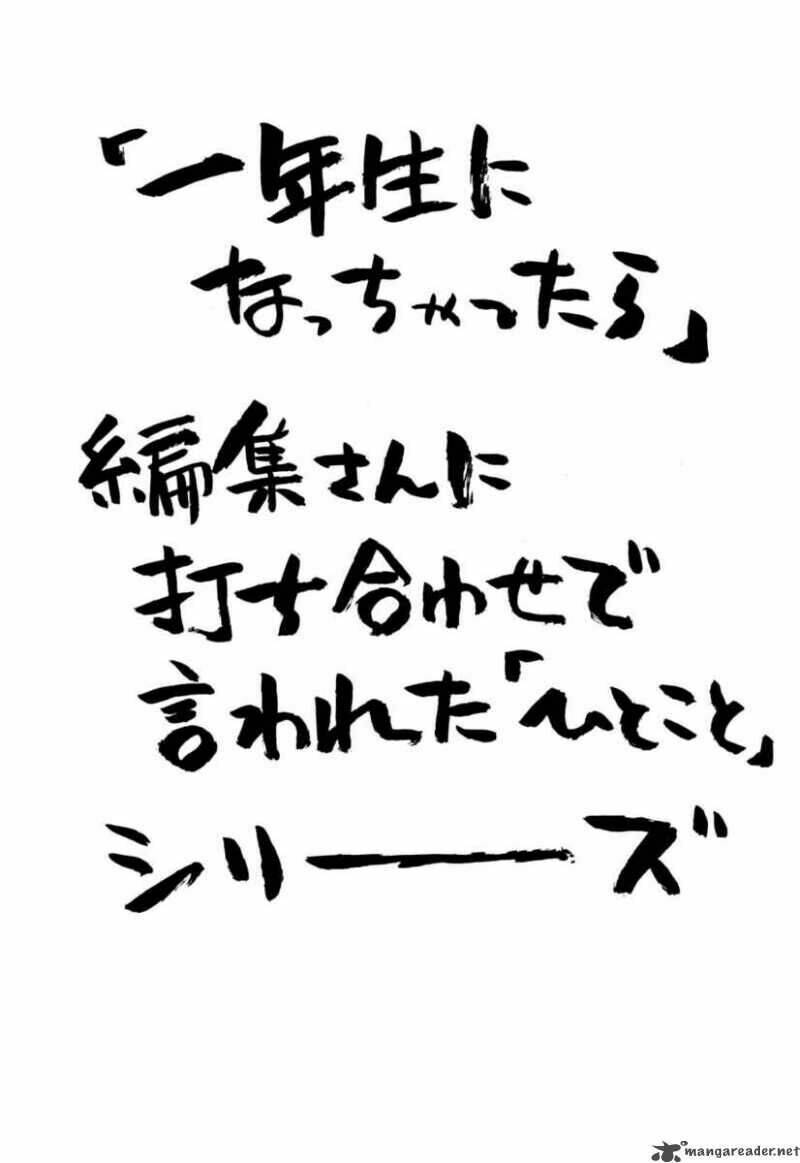 「一年生に
なっちゃったら」
編集さんに
打ち合わせで
言われた「ひとこと」
シリーズ
mangareader.net